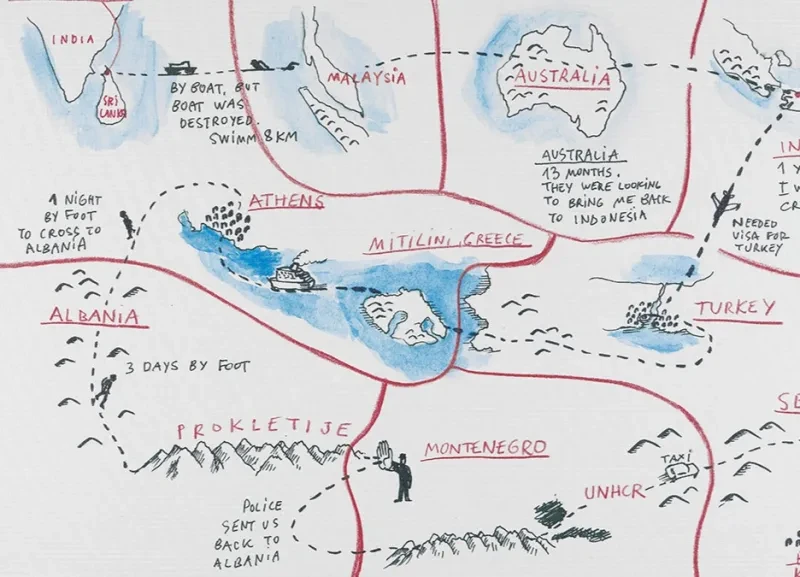 INDIA
SRI
LANKA
BY BOAT, BUT
BOAT WAS
DESTROYED.
SWIMM 8 KM
MALAYSIA
AUSTRALIA
AUSTRALIA
13 MONTHS.
THEY WERE LOOKING
TO BRING ME BACK
TO INDONESIA
IN
1 Y
I W
CR
NEEDED
VISA FOR
TURKEY
1 NIGHT
BY FOOT
TO CROSS TO
ALBANIA
ATHENS
MITILINI, GREECE
TURKEY
ALBANIA
3 DAYS BY FOOT
PROKLETIJE
MONTENEGRO
SE
TAXI
UNHCR
POLICE
SENT US
BACK TO
ALBANIA